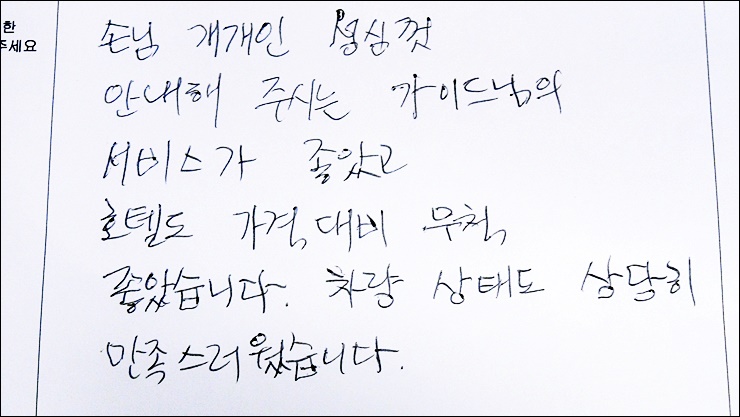 한
주세요
손님 개개인 성심껏
안내해 주시는 가이드님의
서비스가 좋았고
호텔도 가격대비 무척
좋았습니다. 차량 상태도 상당히
만족스러웠습니다.